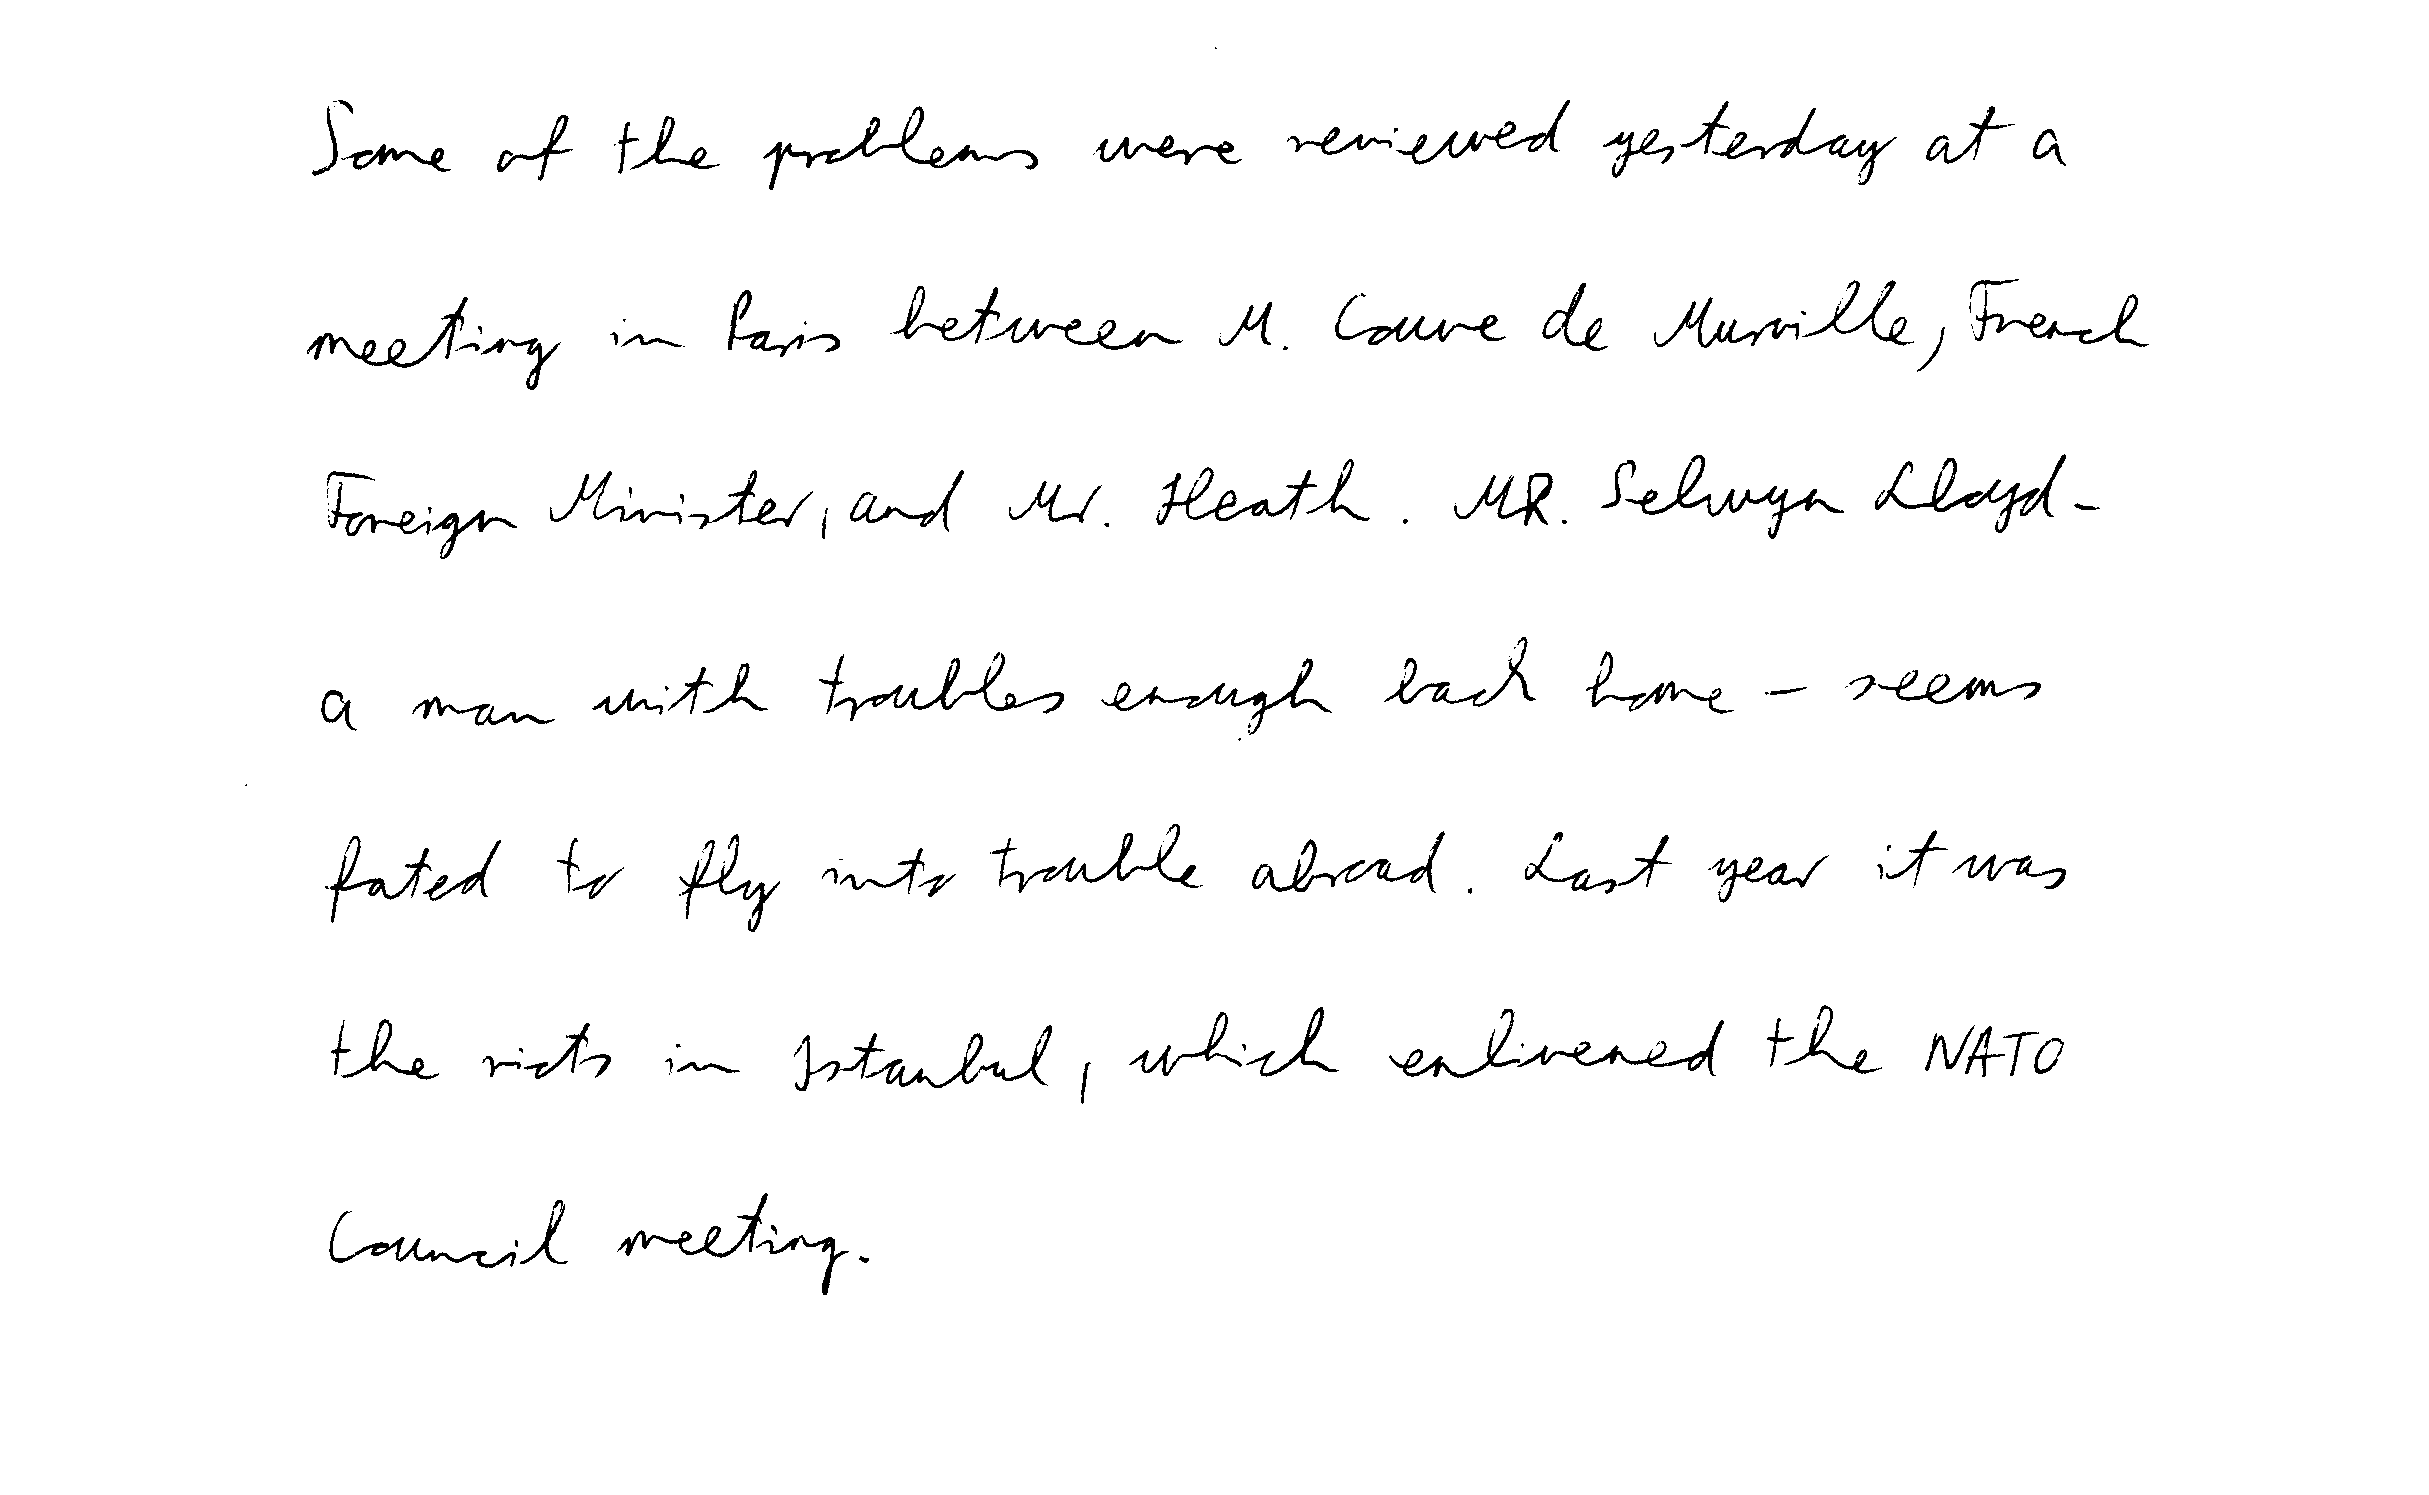 Some of the problems were reviewed yesterday at a
meeting in Paris between M. Couve de Murville, French
Foreign Minister, and Mr. Heath. MR. Selwyn Lloyd -
a man with troubles enough back home - seems
fated to fly into trouble abroad. Last year it was
the riots in Istanbul, which enlivened the NATO
Council meeting.